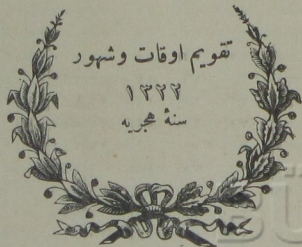 تقويم اوقات وشهور
١٣٢٢
سنۀ هجريه